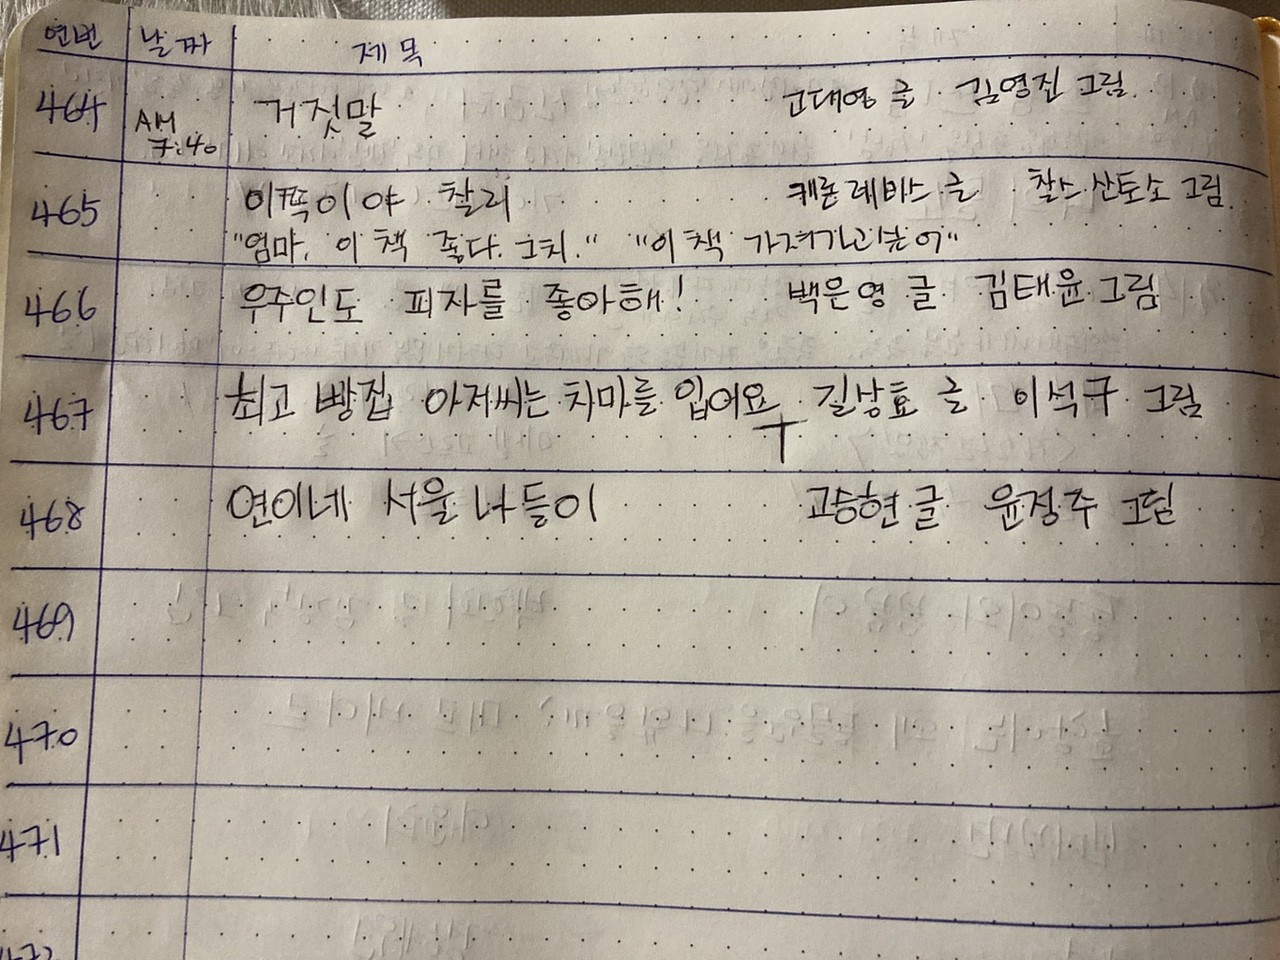 연번 날짜 제목
464 AM 7:40 거짓말 고대영 글 김영진 그림
465 이쪽이야 찰리 캐론 레비스 글 찰스 산토소 그림
"엄마, 이 책 좋다. 그치." "이 책 가져가고싶어"
466 우주인도 피자를 좋아해! 백은영 글 김태윤 그림
467 최고 빵집 아저씨는 치마를 입어요 길상효 글 이석구 그림
468 연이네 서울 나들이 고승현 글 윤정주 그림
469
470
471